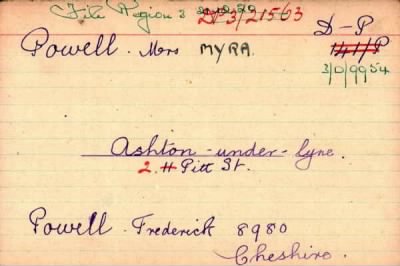 File Region 3
DP3/21563
D-P
141/P
3/D/9954
Powell. Mrs MYRA.
Ashton-under-lyne.
2. # Pitt St.
Powell. Frederick 8980
Cheshire.